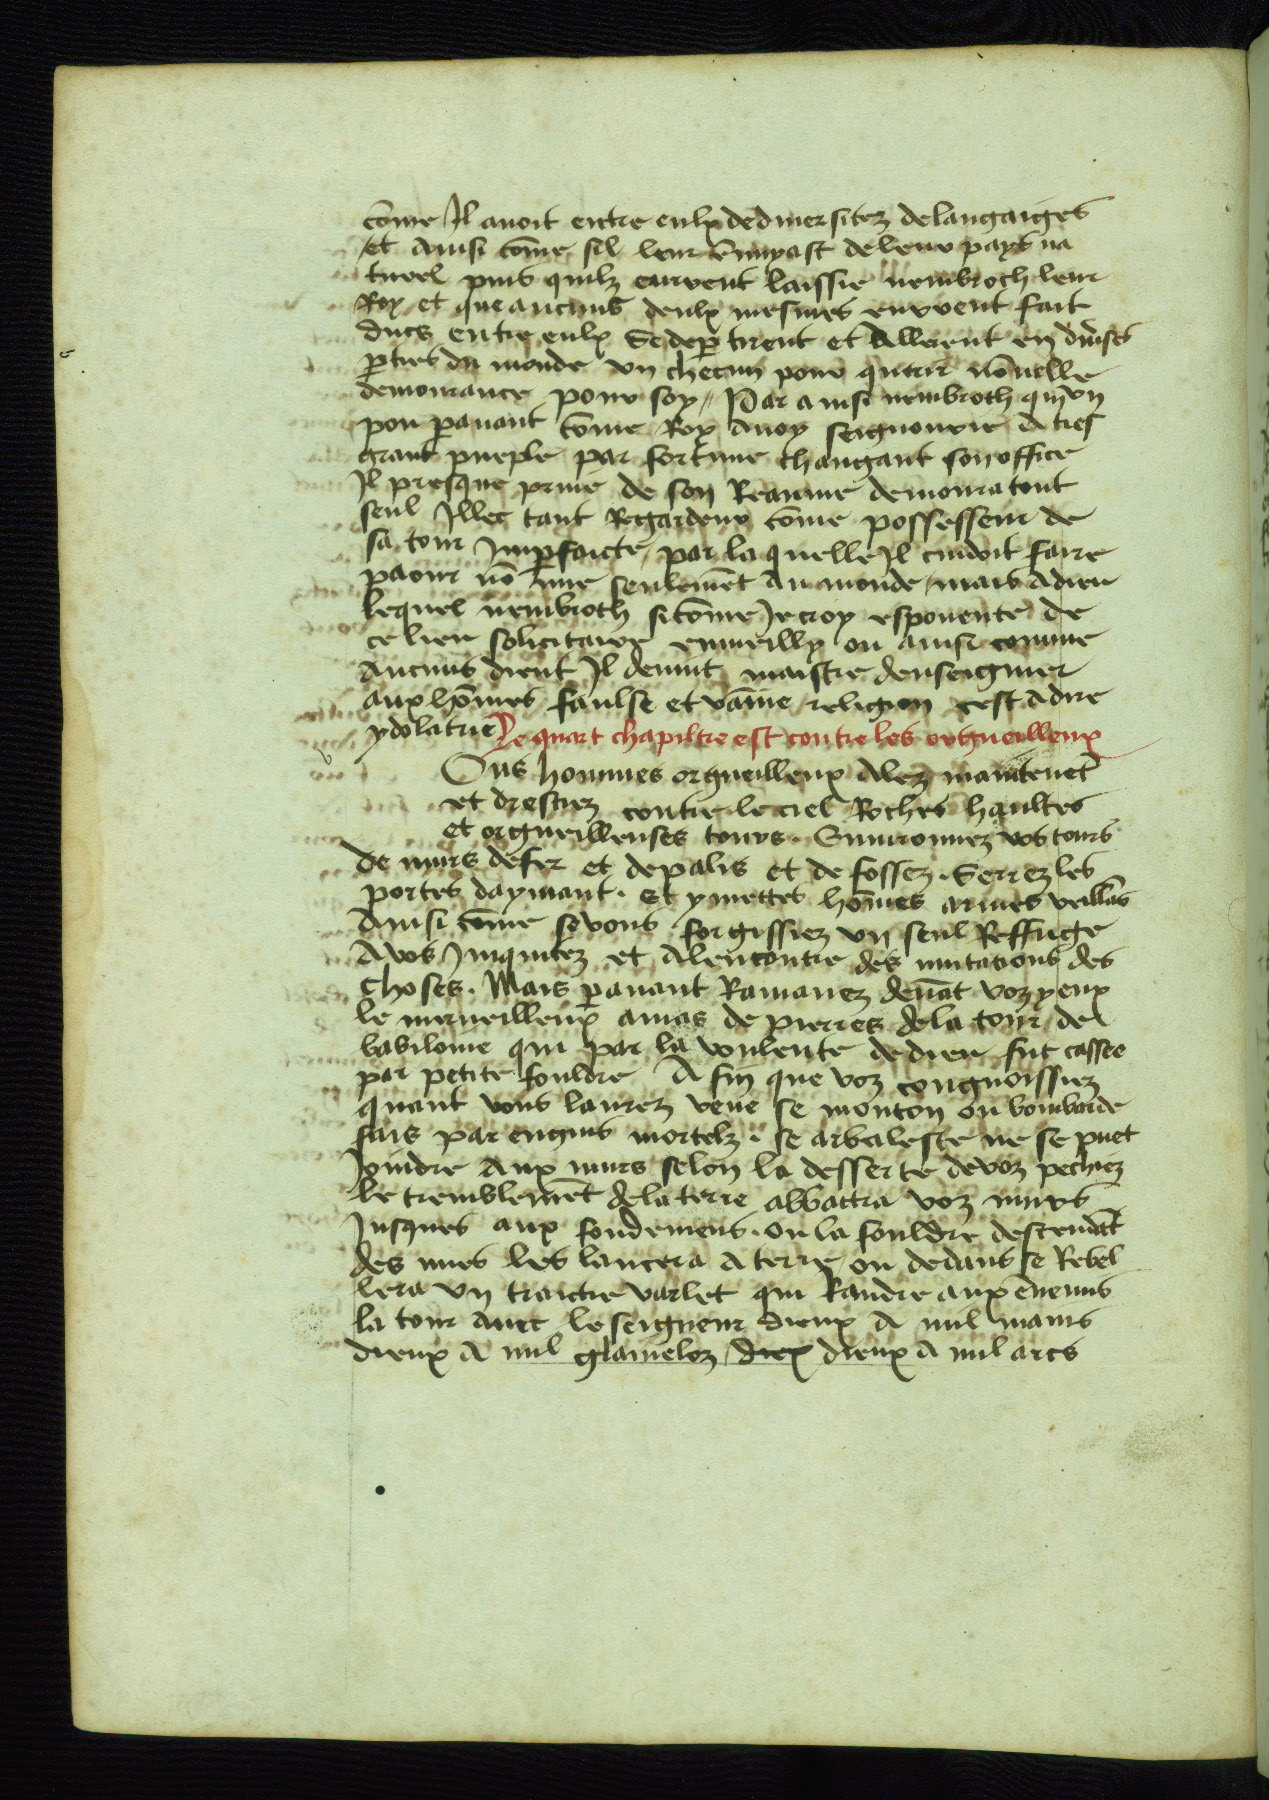 cōme Il auoit entre eulx de diuersitez de langaiges
et Ainsi cōme sil leur ēnuyast de leur pays na
turel puis quilz eurent laissie nembroch leur
Roy et que aucuns deulx mesmes eurent fait
ducs entre eulx Se deꝑtirent et Allerent en diu̅ses
ꝑties du monde vn checun pour querir nouuelle
demourance pour soy // Par ainsi nembroth qui en
pou ꝑauant cōme Roy auoy seignourie A tres
grant pueple par fortune changant son office
Il presque priue de son Reaume demoura tout
seul Illec tant Regardeur cōme possesseur de
sa tour Imꝑfaicte par la quelle Il cuidoit faire
paour nō mie seulemēt Au monde mais A dieu
lequel nembroth si cōme Je croy espouente de
ce lieu solicitaire enuieilly ou ainsi comme
Aucuns dient Il deuint maistre denseigner
aux hōmes faulse et vaine religion cest adire
ydolatrie Le quart chapiltre est contre les orgueilleux
v Ous hommes orgueilleux Alez maintenāt
et dresciez contre le ciel Roches haultes
et orgueilleuses tours . Enuironnez vos tours
de murs de fer et de palis et de fossez . Serrez les
portes daymant . et y mettes hōmes armes veillās
Ainsi cōme se vous forgissiez vn seul Reffuge
A vos Iniquitez et Alencontre des mutations des
choses . Mais ꝑauant Ramanez deuāt voz yeux
le merueilleux amas de pierres de la tour de
babiloine qui par la voulente de dieu fut cassee
par petite fouldre A fin que voz congnoissiez
quant vous laurez veue se monton ou bombarde
fais par engins mortelz . se arbaleste ne se puet
Joindre Aux murs selon la desserte de voz pechiez
le tremblemēt de la terre abbatra voz murs
Jusques aux fondemens . ou la fouldre descendāt
des nues les lancera A terre ou dedans se Rebel
lera vn traictre varlet qui Randre aux ēnemis
la tour Auec le seigneur dieux A mil mains
dieux A mil glaiuelez dieux dieux A mil arcs